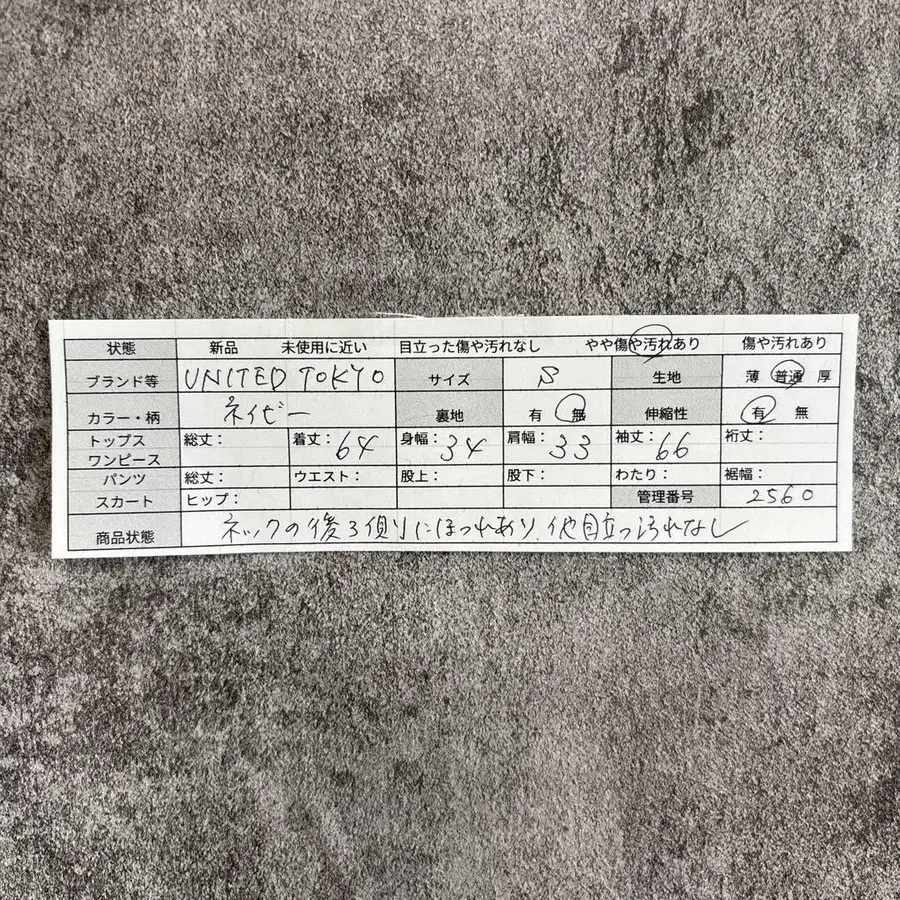 状態 新品 未使用に近い 目立った傷や汚れなし やや傷や汚れあり 傷や汚れあり
ブランド等 UNITED TOKYO サイズ S 生地 薄 普通 厚
カラー・柄 ネイビー 裏地 有 無 伸縮性 有 無
トップス ワンピース 総丈: 着丈:64 身幅:34 肩幅:33 袖丈:66 裄丈:
パンツ 総丈: ウエスト: 股上: 股下: わたり: 裾幅:
スカート ヒップ: 管理番号 2560
商品状態 ネックの後ろ側りにほつれあり、他目立つ汚れなし